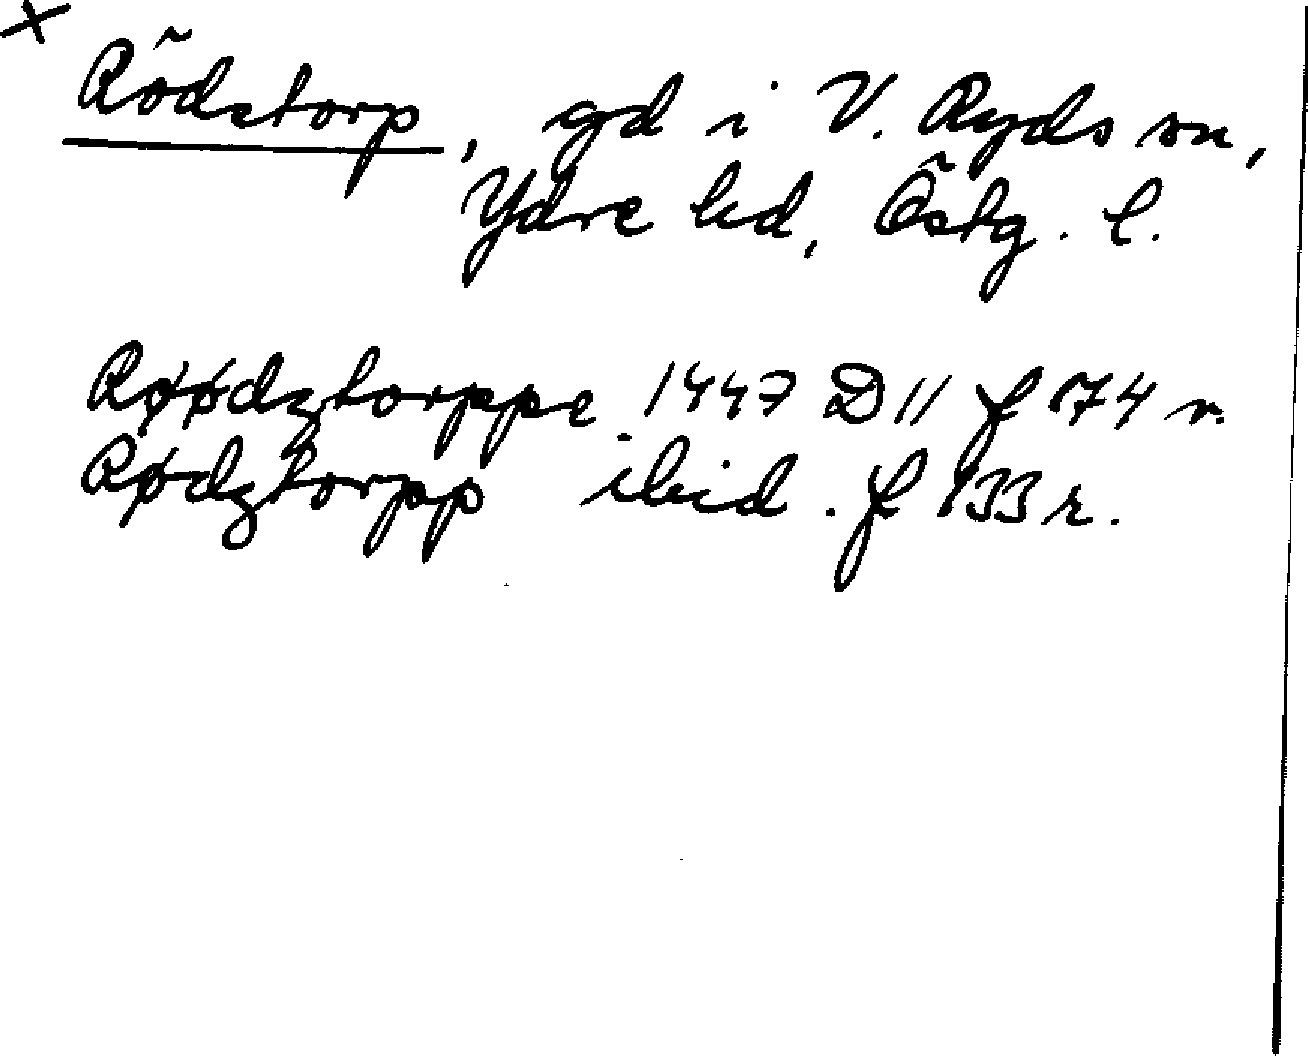 x
Rödstorp, gd i V. Ryds sn,
Ydre hd, Östg. l.
Røødztorppe 1447 D 11 f 174 v.
Rødztorpp ibid. f 133 r.